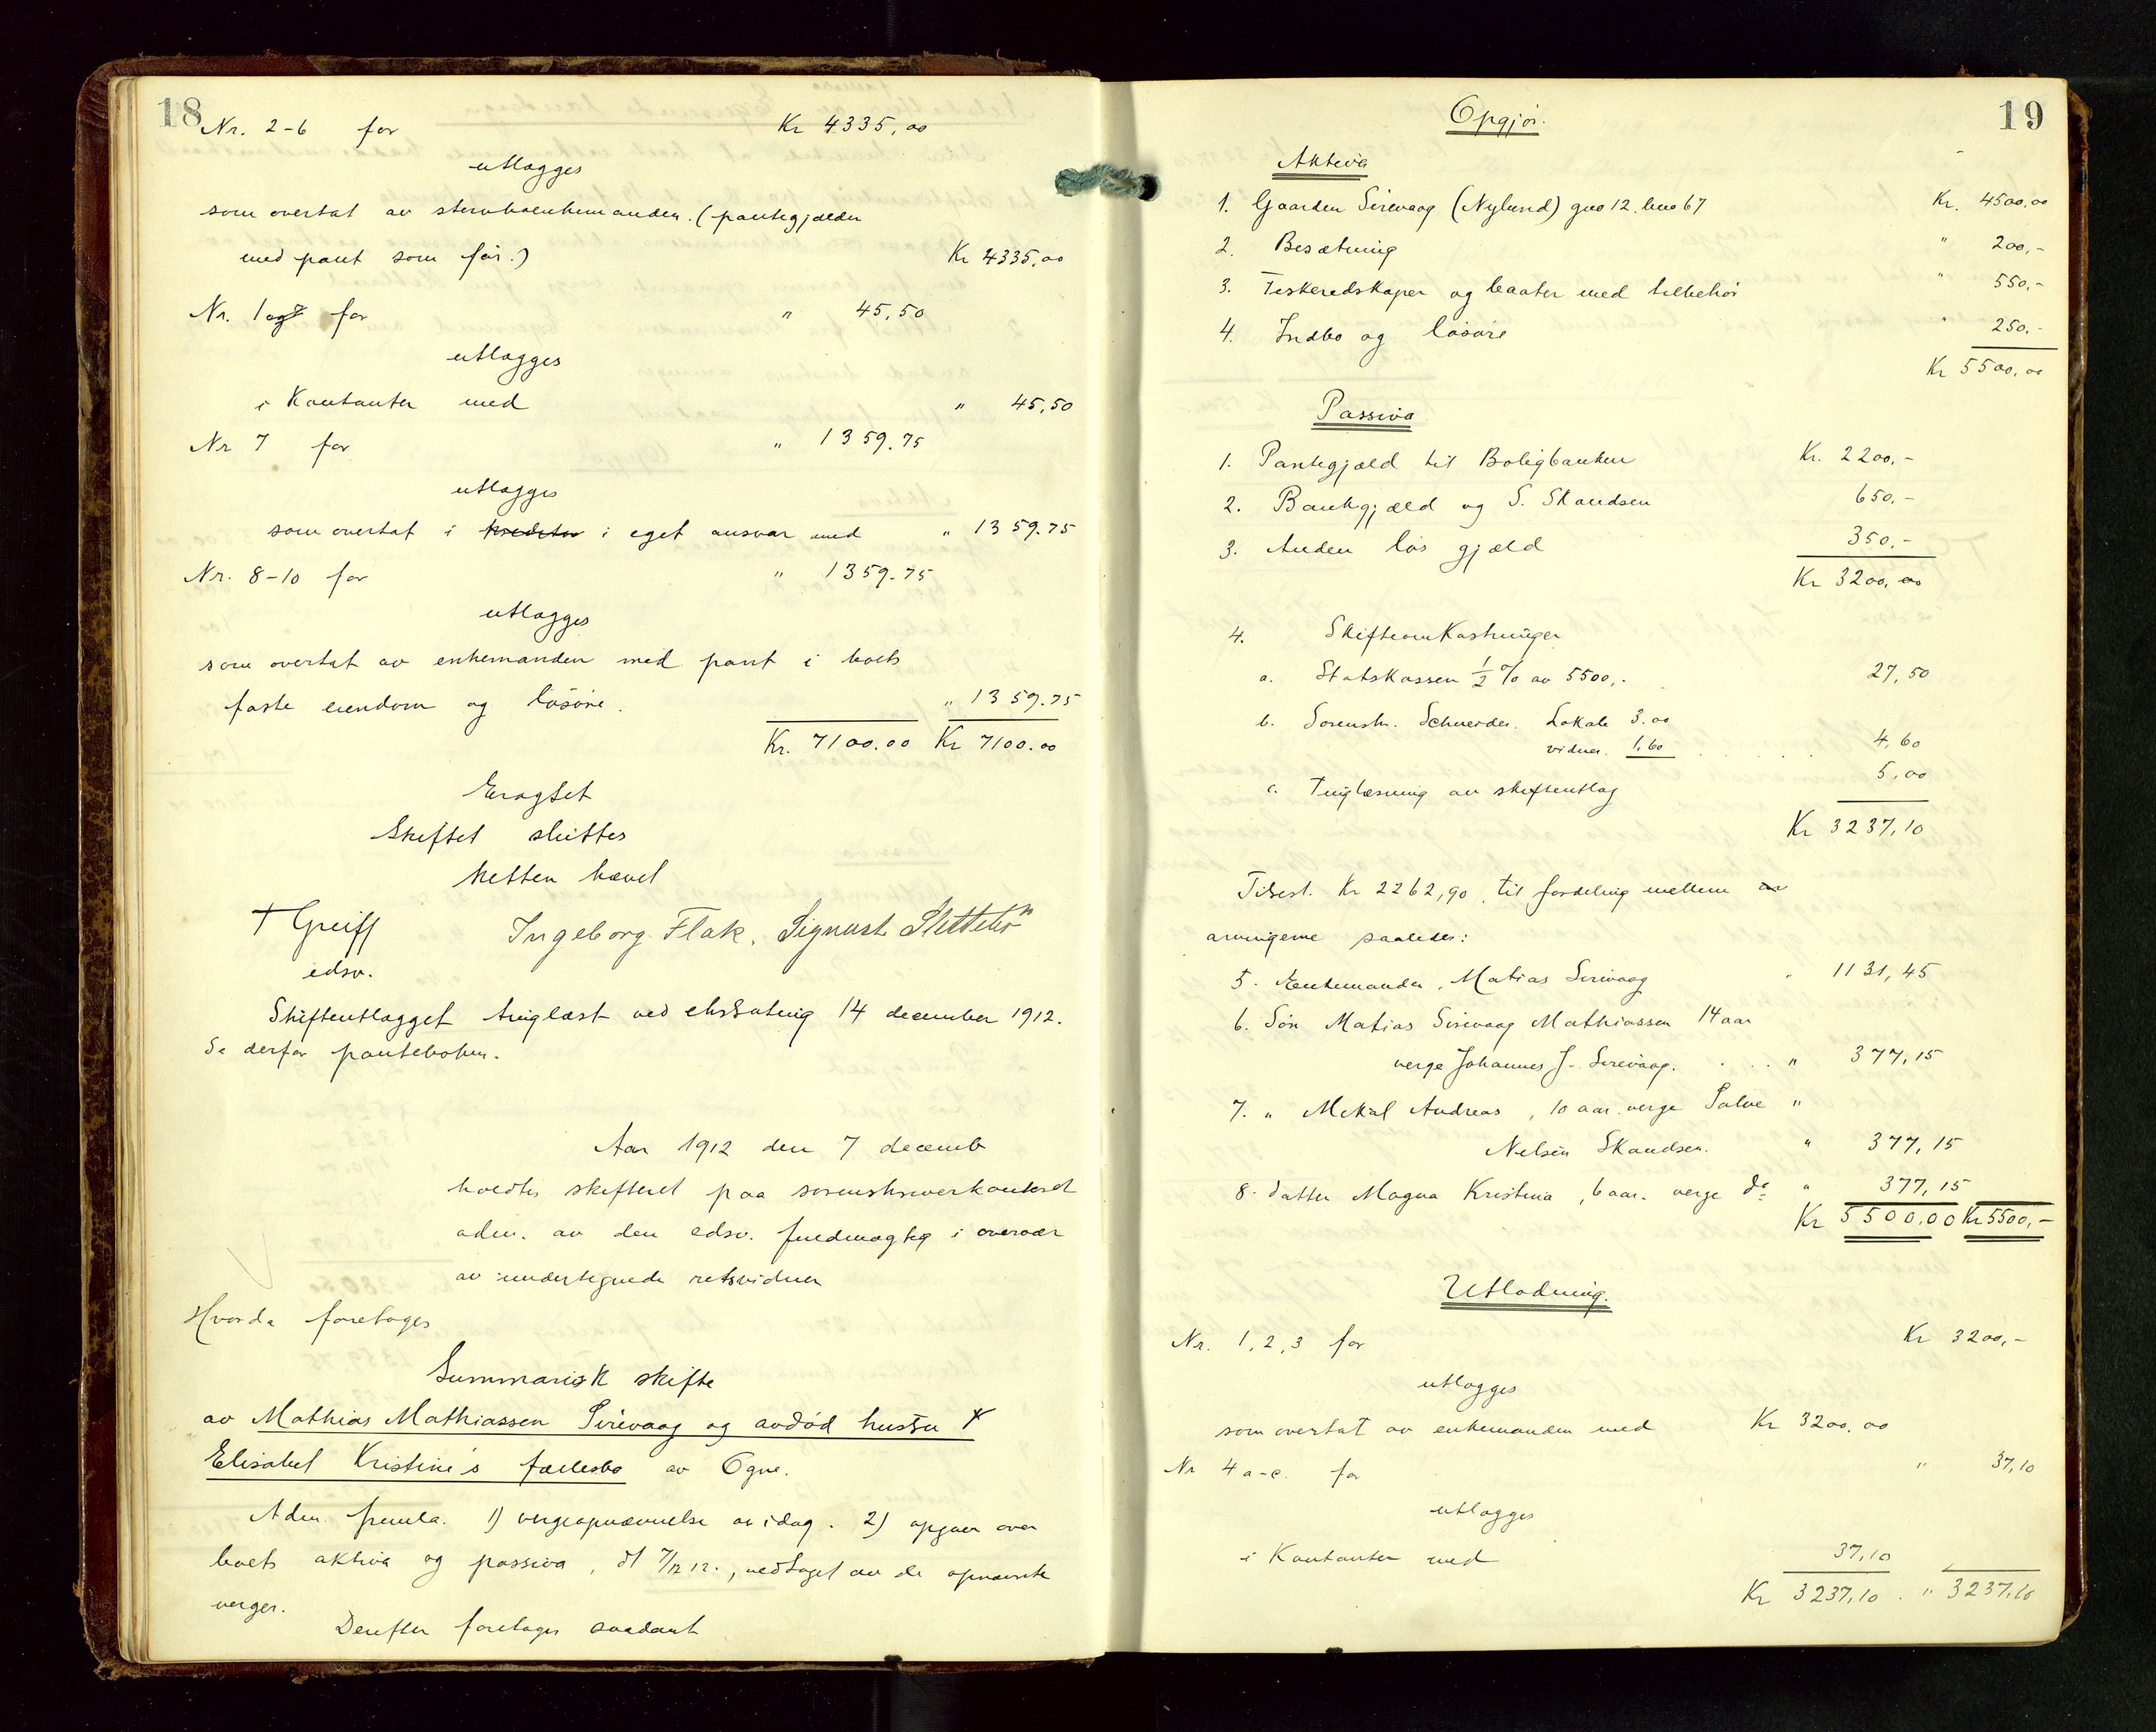 18
Nr. 2-6 for Kr 4335,00
utlægges
som overtat av stervboenkemanden. (pantegjælden
med pant som før.) Kr 4335,00
Nr. 1 og 7 for " 45,50
utlægges
i Kontanter med " 45,50
Nr 7 for " 1359.75
utlægges
som overtat i i eget ansvar med " 1359.75
Nr. 8-10 for " 1359.75
utlægges
som overtat av enkemanden med pant i boets
faste eiendom og løsøre. " 1359.75
Kr. 7100.00 Kr 7100.00
Eragtet
Skiftet sluttes
Retten hævet
T Greiff Ingeborg Flak. Signart Slettebø
edsv.
Skifteutlægget tinglæst ved ekstrating 14 december 1912.
Se derfor panteboken.
Aar 1912 den 7 decemb
holdtes skifteret paa sorenskriverkontoret
adm. av den edsv. fuldmægtig i overvær
av undertegnede retsvidner
Hvorda foretoges
Summarisk skifte
av Mathias Mathiassen Sirevaag og avdød hustru
Elisabet Kristine's fællesbo av Ogne.
Adm. fremla. 1) vergeopnævnelse av idag. 2) opgave over
boets aktiva og passiva, dt 7/12 12., vedtaget av de opnævnte
verger.
Derefter foretoges saadant
19
Opgjør.
Aktiva
1. Gaarden Sirevaag (Nylund) gno 12. bno 67 Kr. 4500,00
2. Besætning " 200,-
3. Fiskeredskaper og baater med tilbehør " 550,-
4. Indbo og løsøre " 250,-
Kr 5500,00
Passiva
1. Pantegjæld til Boligbanken Kr. 2200,-
2. Bankgjæld og S. Skandsen 650,-
3. Anden løs gjæld 350,-
Kr 3200,00
4. Skifteomkostninger
a. Statskassen 1/2 % av 5500,- 27,50
b. Sorenskr. Schneider. Lokale 3.00
vidner. 1,60 4,60
c. Tinglæsning av skifteutlæg 5,00
Kr 3237,10
Tilrest. Kr 2262,90 til fordeling mellem
arvingerne saaledes:
5. Enkemanden, Matias Sirevaag " 1131,45
6. Søn Matias Sirevaag Mathiassen 14 aar
verge Johannes J. Sirevaag. " 377,15
7. " Mikal Andreas, 10 aar. verge Salve "
Nilsen Skandsen. " 377,15
8. datter Magna Kristina, 6 aar. verge do " 377,15
Kr 5500,00 Kr 5500,-
Utlodning.
Nr. 1, 2, 3 for Kr 3200,-
utlægges
som overtat av enkemanden med Kr 3200,00
Nr 4 a-c. for " 37,10
utlægges
i Kontanter med 37,10
Kr 3237,10 " 3237,10